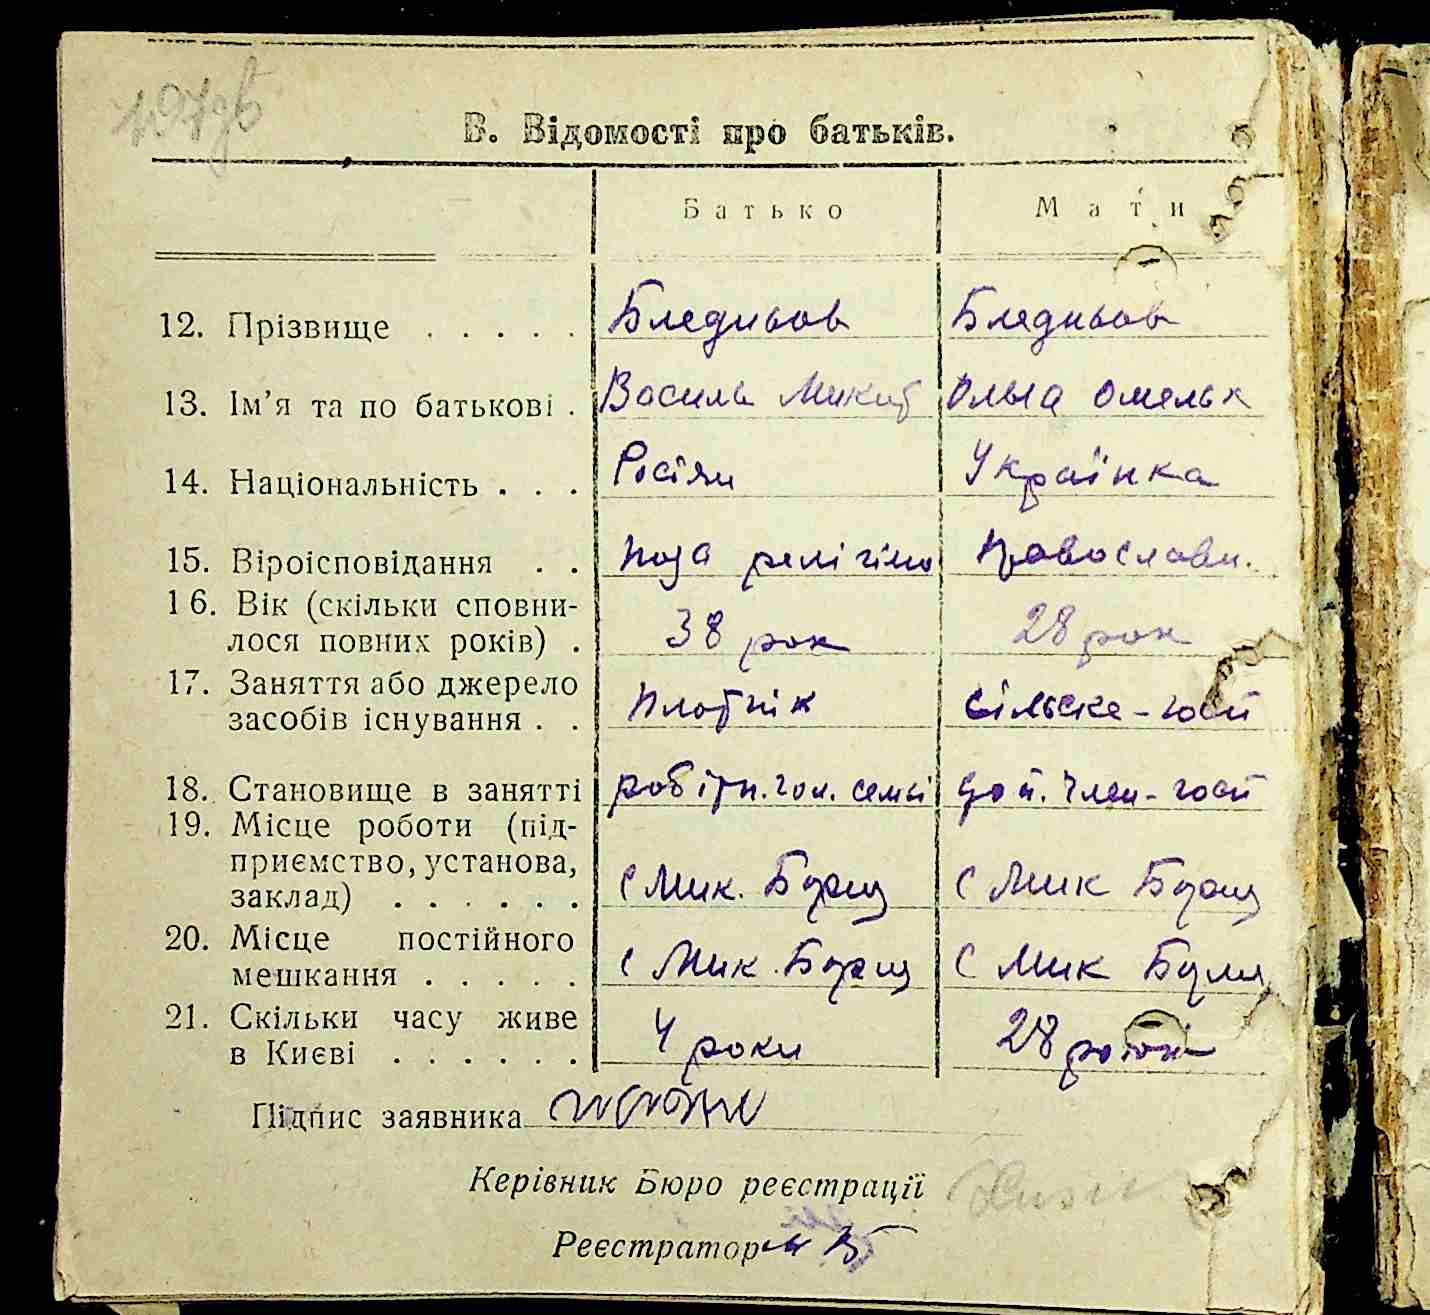 В. Відомості про батьків.
Батько Мати
12. Прізвище . . . . . Бледньов Бледньов
13. Ім’я та по батькові . Василь Микит Ольга Омельк
14. Національність . . . Росіян Українка
15. Віроісповідання . . поза релігіно православн.
16. Вік (скільки сповни-
лося повних років) . 38 рок 28 рок
17. Заняття або джерело
засобів існування . . плотнік сільске-госп
18. Становище в занятті робітн. гол. семьі доп. член-госп
19. Місце роботи (під-
приємство, установа,
заклад) . . . . . . с Мик. Борщ с Мик Борщ
20. Місце постійного
мешкання . . . . . с Мик. Борщ с Мик Борщ
21. Скільки часу живе
в Києві . . . . . . 4 роки 28 років
Підпис заявника
Керівник Бюро реєстрації
Реєстратор